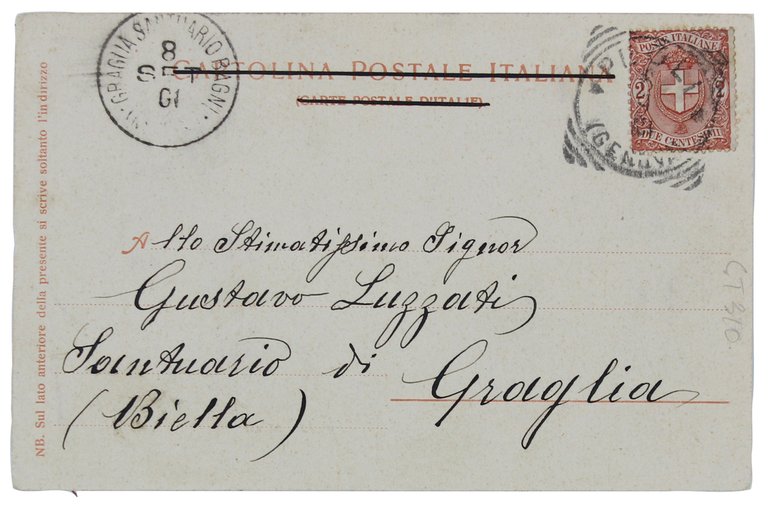 GRAGLIA SANTUARIO BAGNI
8
SET
01
CARTOLINA POSTALE ITALIANA
(CARTE POSTALE D'ITALIE)
POSTE ITALIANE
2 2
DUE CENTESIMI
(GENOVA)
NB. Sul lato anteriore della presente si scrive soltanto l'indirizzo
Allo Stimatissimo Signor
Gustavo Luzzati
Santuario di Graglia
(Biella)
CT310